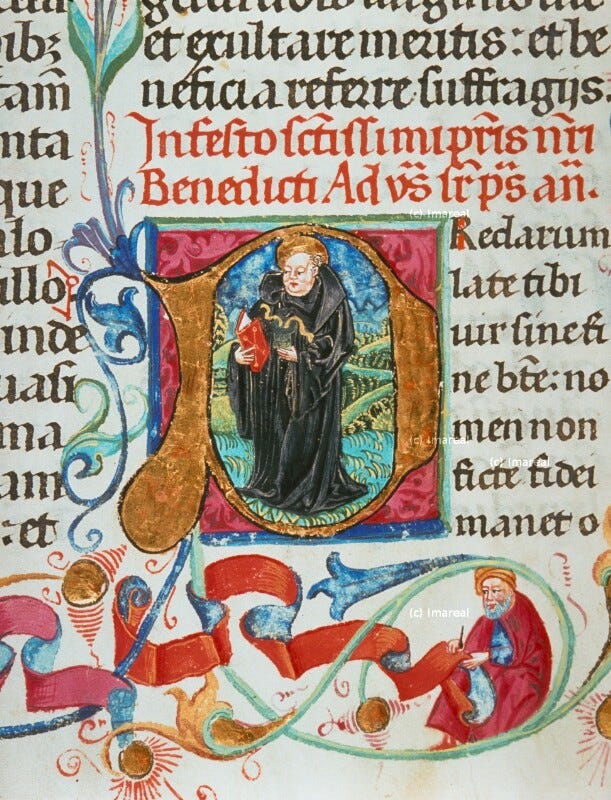 ibꝫ
tam̄
nta
que
ulo
illo
unde
uasi
ma
am
: et
et exultare meritis: et be
neficia referre suffragijs
In festo sctissimi pris nri
Benedicti Ad vs sr ps an.
P Reclarum
late tibi
uir sine fi
ne bte: no
men non
ficte fidei
manet o
(c) Imareal
(c) Imareal
(c) Imareal
(c) Imareal